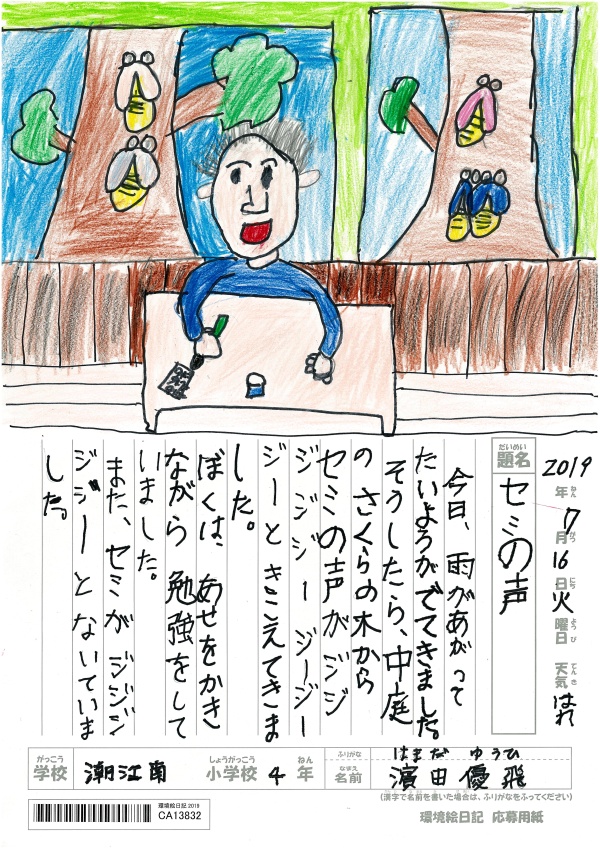 2019年ねん7月がつ16日にち火曜日ようび 天気てんきはれ
題名だいめい セミの声
今日、雨があがって
たいようがでてきました。
そうしたら、中庭
の さくらの木から
セミの声がジジ
ジジジー ジージー
ジーときこえてきま
した。
ぼくは、あせをかき
ながら 勉強をして
いました。
また、セミがジジジ
ジジーとないていま
した。
がっこう しょうがっこう ねん ふりがな はまだ ゆうひ
学校 潮江南 小学校 4年 なまえ 名前 濵田優飛
(漢字で名前を書いた場合は、ふりがなをふってください)
環境絵日記 2019
CA13832
環境絵日記 応募用紙